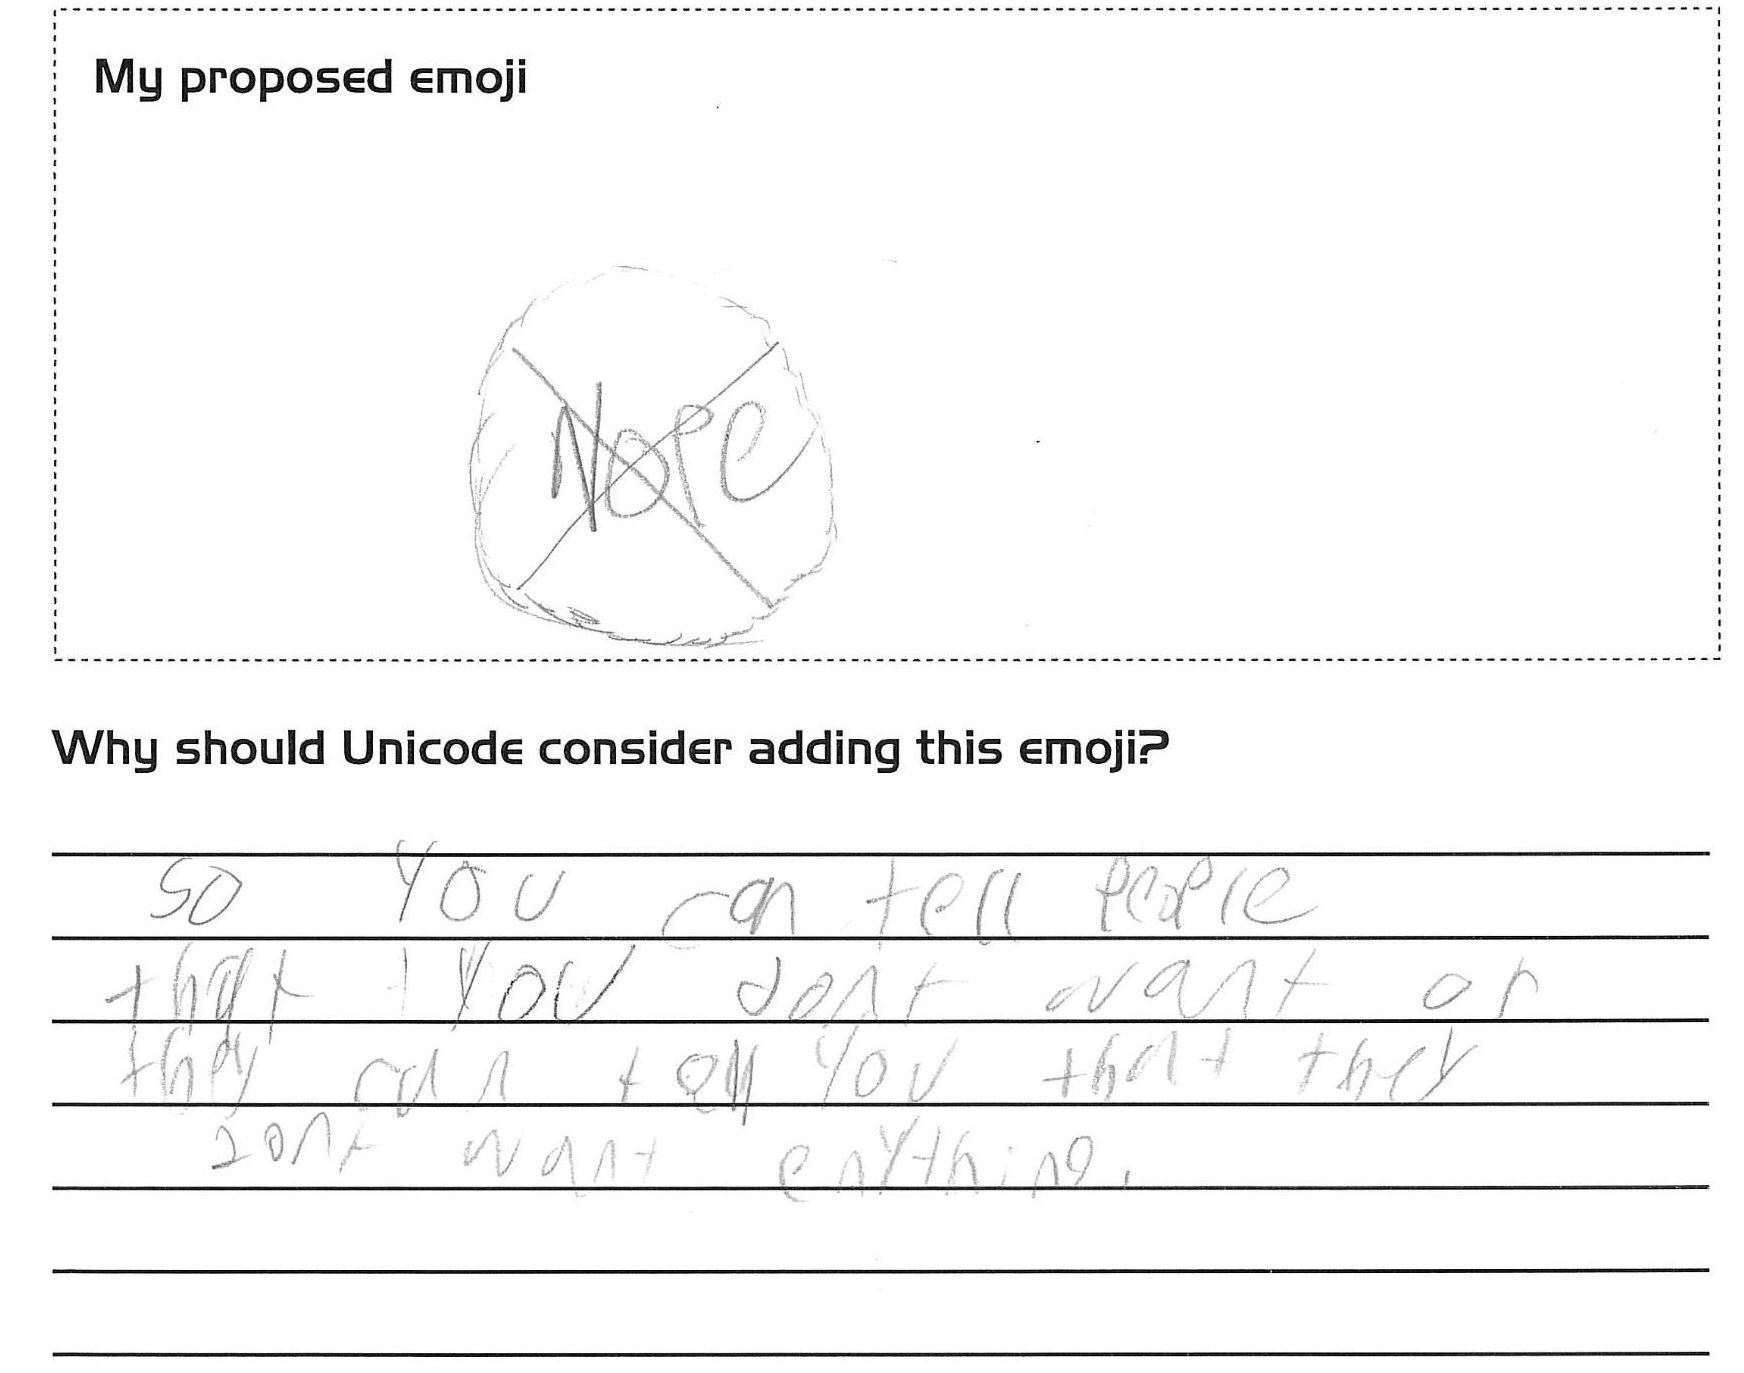 My proposed emoji
NOPE
Why should Unicode consider adding this emoji?
so you can tell people
that you dont want or
they can tell you that they
dont want enything.